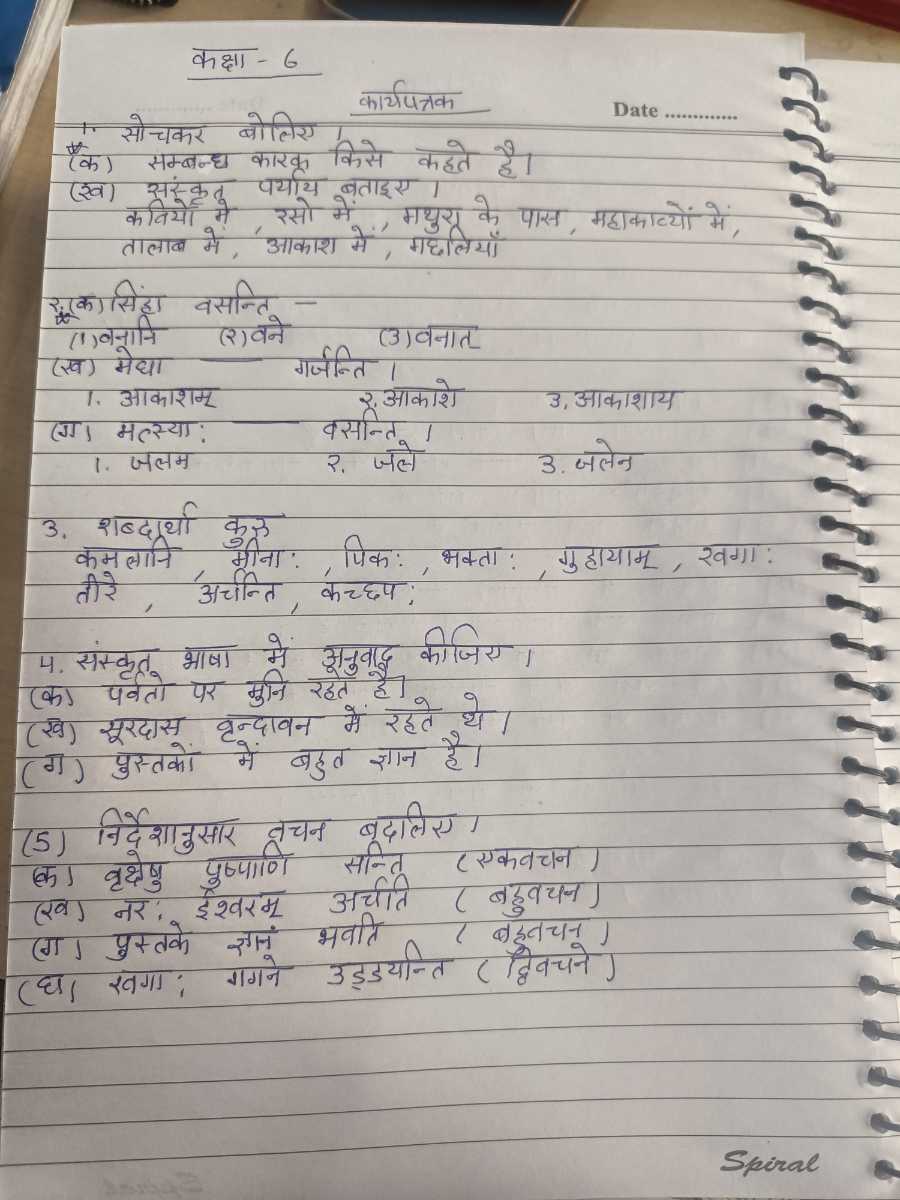 कक्षा - 6
कार्यपत्रक
Date .............
1. सोचकर बोलिए।
(क) सम्बन्ध कारक किसे कहते है।
(ख) संस्कृत पर्याय बताइए।
कवियों में, रसो में, मथुरा के पास, महाकाव्यों में,
तालाब में, आकाश में, मछलियाँ
२. (क) सिंहा वसन्ति —
(1) वनानि (२) वने (3) वनात्
(ख) मेघा —— गर्जन्ति।
1. आकाशम् २. आकाशे 3. आकाशाय
(ग) मत्स्या: —— वसन्ति।
1. जलम २. जले 3. जलेन
3. शब्दार्था कुरु
कमलानि, मीना:, पिक:, भक्ता:, गुहायाम्, खगा:
तीरे, अर्चन्ति, कच्छप:
4. संस्कृत भाषा में अनुवाद कीजिए।
(क) पर्वतो पर मुनि रहते है।
(ख) सूरदास वृन्दावन में रहते थे।
(ग) पुस्तकों में बहुत ज्ञान है।
(5) निर्देशानुसार वचन बदलिए।
(क) वृक्षेषु पुष्पाणि सन्ति (एकवचन)
(ख) नर: ईश्वरम् अर्चति (बहुवचन)
(ग) पुस्तके ज्ञानं भवति (बहुवचन)
(घ) खगा: गगने उड्डयन्ति (द्विवचने)
Spiral